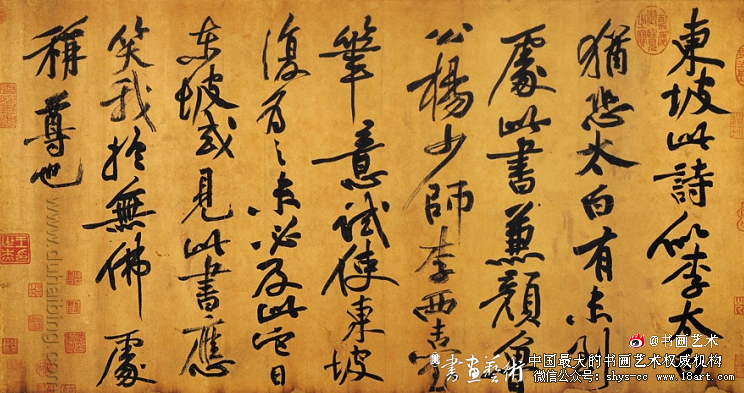 東坡此詩似李太白
猶恐太白有未到
處此書兼顏魯
公楊少師李西臺
筆意試使東坡
復為之未必及此它日
東坡或見此書應
笑我於無佛處
稱尊也
www.duhaibing.com
@书画艺术
書畫藝術
中国最大的书画艺术权威机构
微信公众号:shys-cc www.18art.com